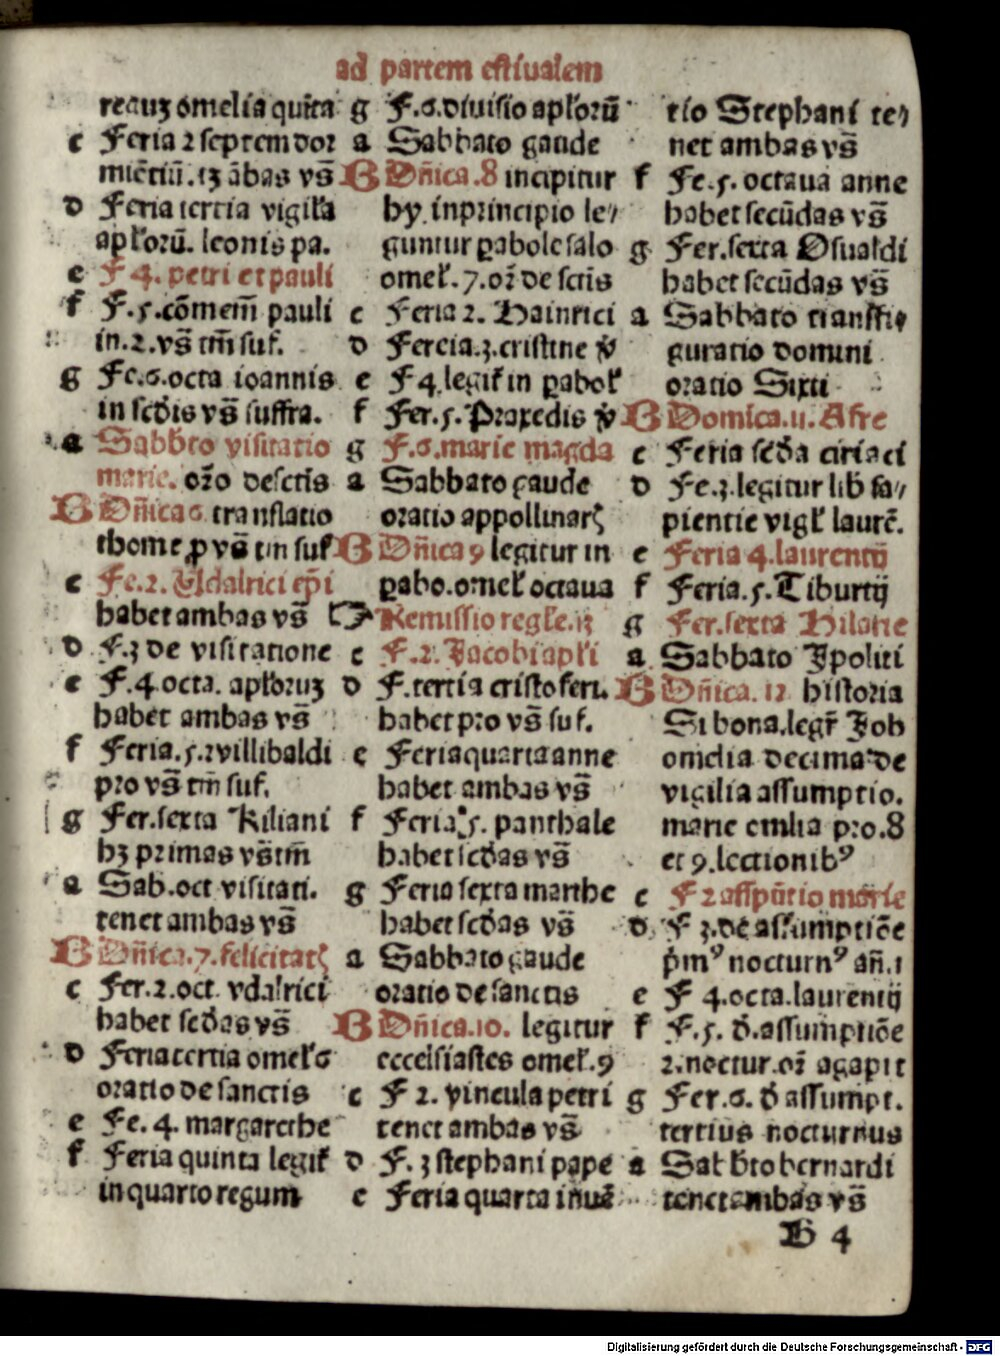 ad partem estiualem
reauʒ omelia quīta
c Feria 2 septem dor
miētiū. tʒ ābas vs̄
d Feria tertia vigil̄a
apl̄orū. leonis pa.
e F 4. petri et pauli
f F. 5. cōmem̄ pauli
in. 2. vs̄ tm̄ suf.
g Fe. 6. octa ioannis
in scd̄is vs̄ suffra.
a Sabb̄to visitatio
marie. or̄o de sctis
B Dn̄ica 6 translatio
thome p̱ vs̄ tm suf
c Fe. 2. Vldalrici ep̄i
habet ambas vs̄
d F. 3 de visitatione
e F. 4 octa. apl̄oruʒ
habet ambas vs̄
f Feria. 5. willibaldi
pro vs̄ tm̄ suf.
g Fer. sexta Kiliani
hʒ primas vs̄ tm̄
a Sab. oct visitati.
tenet ambas vs̄
B Dn̄ica. 7. felicitatꝭ
c Fer. 2. oct. vdalrici
habet scd̄as vs̄
d Feria tertia omel̄ 6
oratio de sanctis
e Fe. 4. margarethe
f Feria quinta legit̄
in quarto regum
g F. 6. diuisio apl̄orū
a Sabbato gaude
B Dn̄ica. 8 incipitur
hy. in principio le⸗
guntur ꝑabole salo
omel̄. 7. or̄ de sctis
c Feria 2. Hainrici
d Fercia. 3. cristine v̄
e F 4 legit̄ in ꝑabol̄
f Fer. 5. Praxedis v̄
g F. 6. marie magda
a Sabbato gaude
oratio appollinarꝭ
B Dn̄ica 9 legitur in
ꝑabo. omel̄ octaua
☞ Remissio regl̄e. 13
c F. 2. Jacobi apl̄i
d F. tertia cristoferi.
habet pro vs̄ suf.
e Feria quarta anne
habet ambas vs̄
f Feria. 5. panthale
habet scd̄as vs̄
g Feria sexta marthe
habet scd̄as vs̄
a Sabbato gaude
oratio de sanctis
B Dn̄ica. 10. legitur
eccelsiastes omel̄. 9
c F 2. vincula petri
tenet ambas vs̄
d F. 3 stephani pape
e Feria quarta inuē
tio Stephani te⸗
net ambas vs̄
f Fe. 5. octaua anne
habet secūdas vs̄
g Fer. sexta Osualdi
habet secūdas vs̄
a Sabbato transfi⸗
guratio domini
oratio Sixti
B Domica. 11. Afre
c Feria scd̄a ciriaci
d Fe. 3. legitur lib̄ sa⸗
pientie vigl̄ laurē.
e Feria 4. laurentij
f Feria. 5. Tiburtij
g Fer. sexta Hilarie
a Sabbato Jpoliti
B Dn̄ica. 12 historia
Si bona. legr̄ Job
omelia decima de
vigilia assumptio.
marie emlia pro. 8
et 9. lectionibꝰ
c F 2 assp̄utio marie
d F 3. de assumptiōe
p̄mꝰ nocturnꝰ an̄. 1
e F 4. octa. laurentij
f F. 5. d̄. assumptiōe
2. noctur. or̄ agapit
g Fer. 6. d̄ assumpt.
tertius nocturnus
a Sabb̄to bernardi
tenet ambas vs̄
B 4
Digitalisierung gefördert durch die Deutsche Forschungsgemeinschaft - DFG